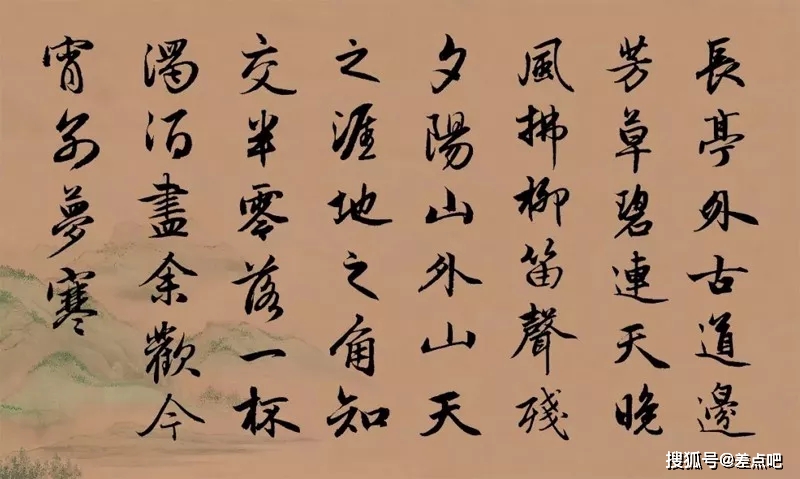 長亭外古道邊
芳草碧連天晚
風拂柳笛聲殘
夕陽山外山天
之涯地之角知
交半零落一杯
濁酒盡余歡今
宵别夢寒
搜狐号@差点吧